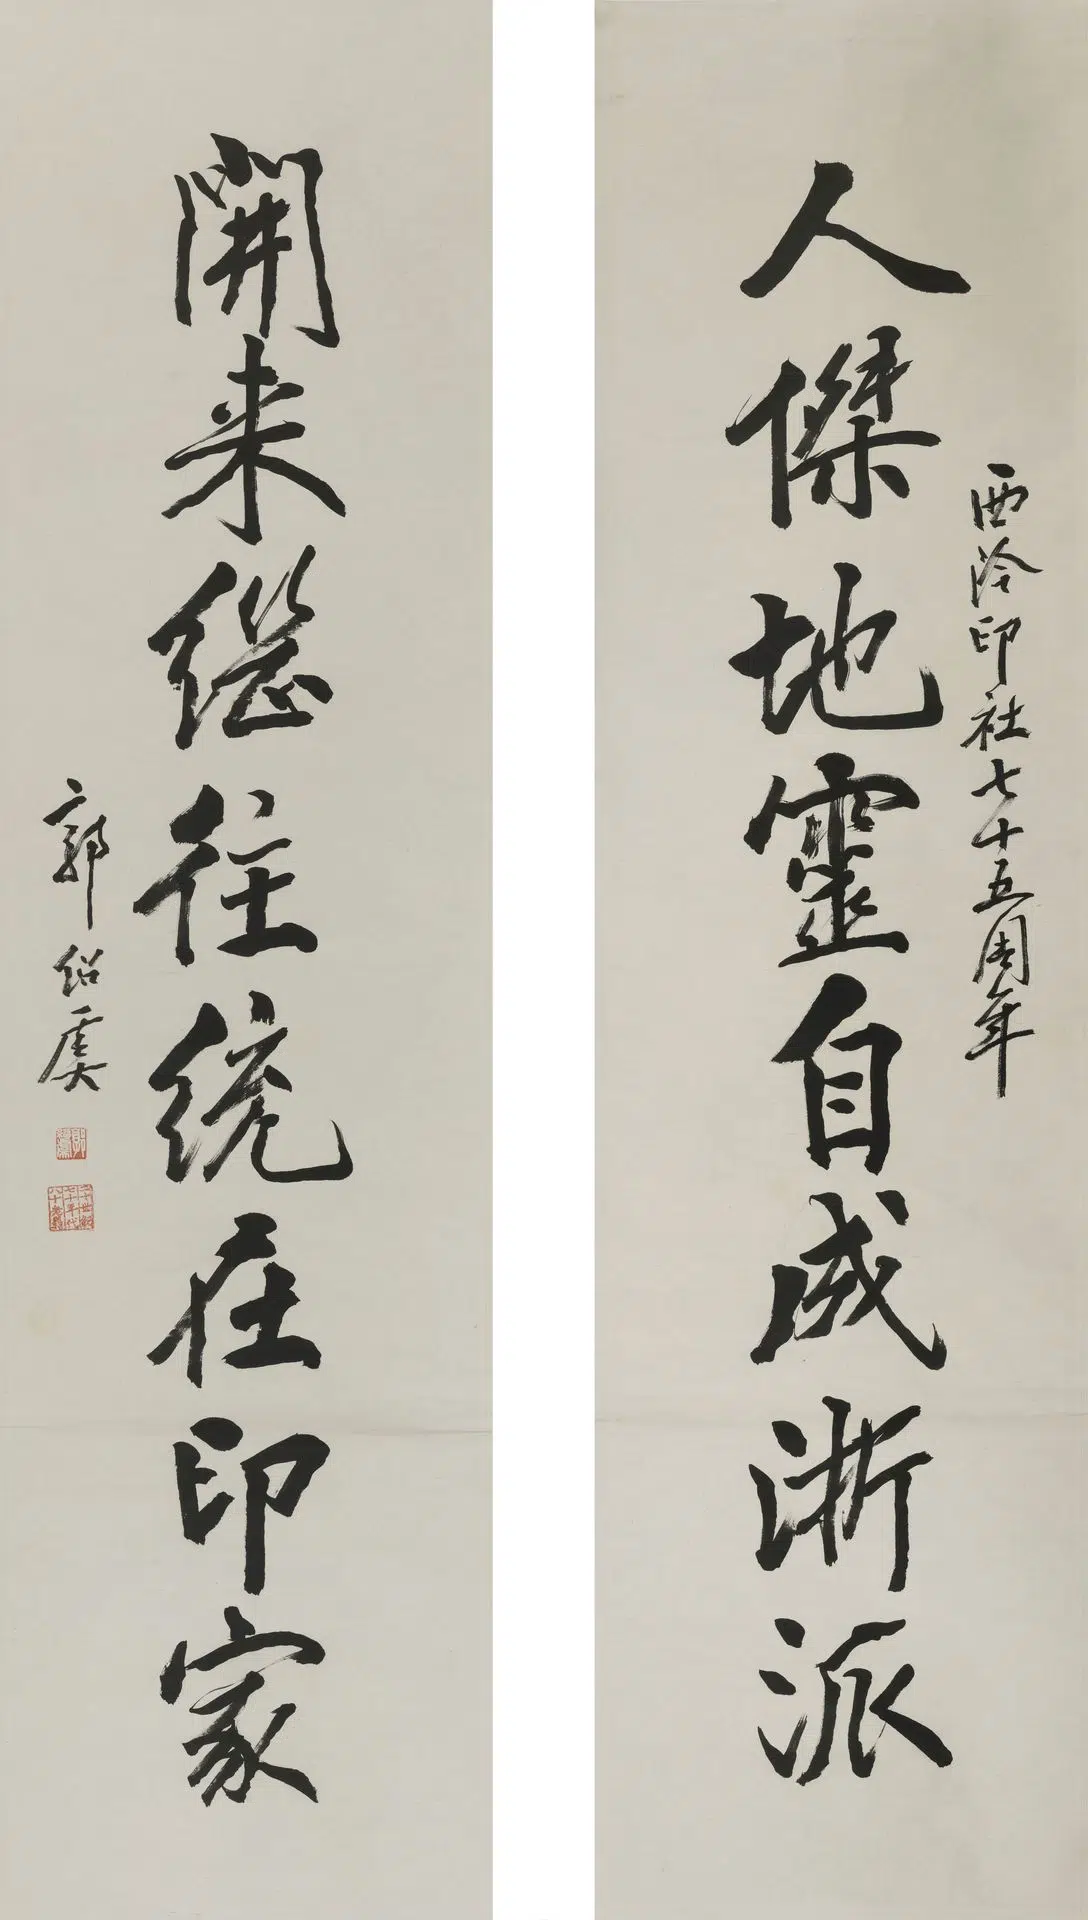 西泠印社七十五周年
人傑地靈自成浙派
開来繼往統在印家
郭绍虞